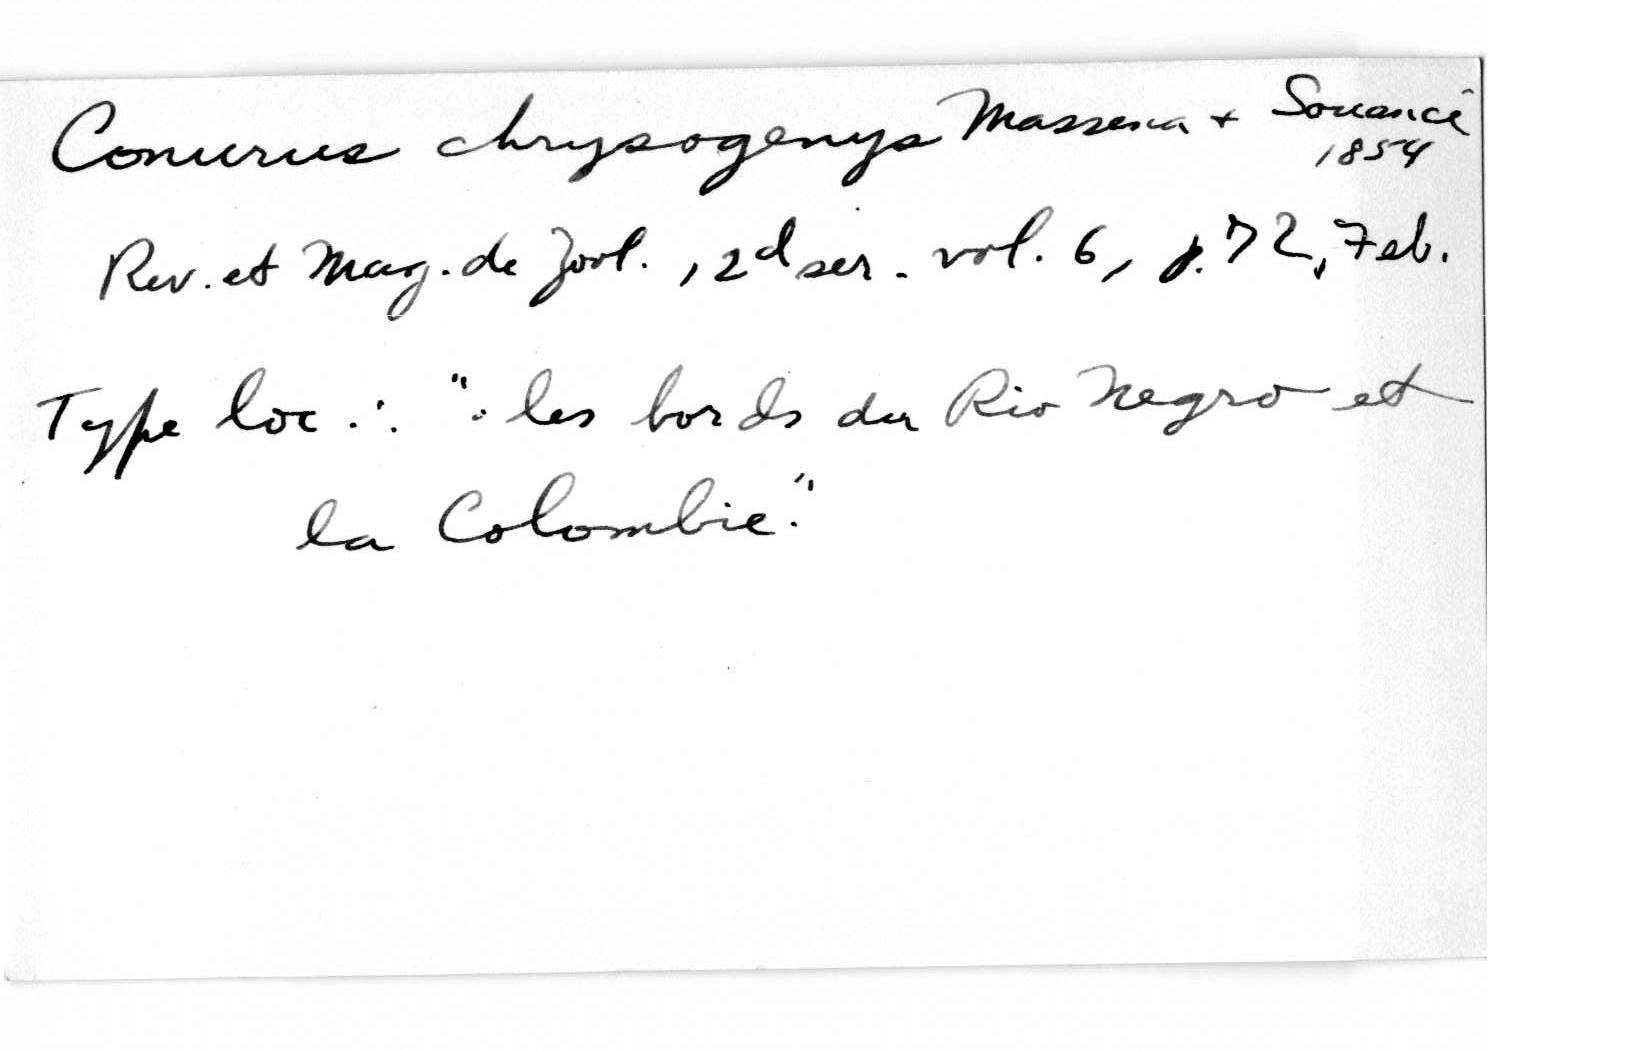 Conurus chrysogenys Massena + Souancé
1854
Rev. et Mag. de Zool., 2d ser. vol. 6, p. 72, Feb.
Type loc.: "les bords du Rio Negro et
la Colombie."